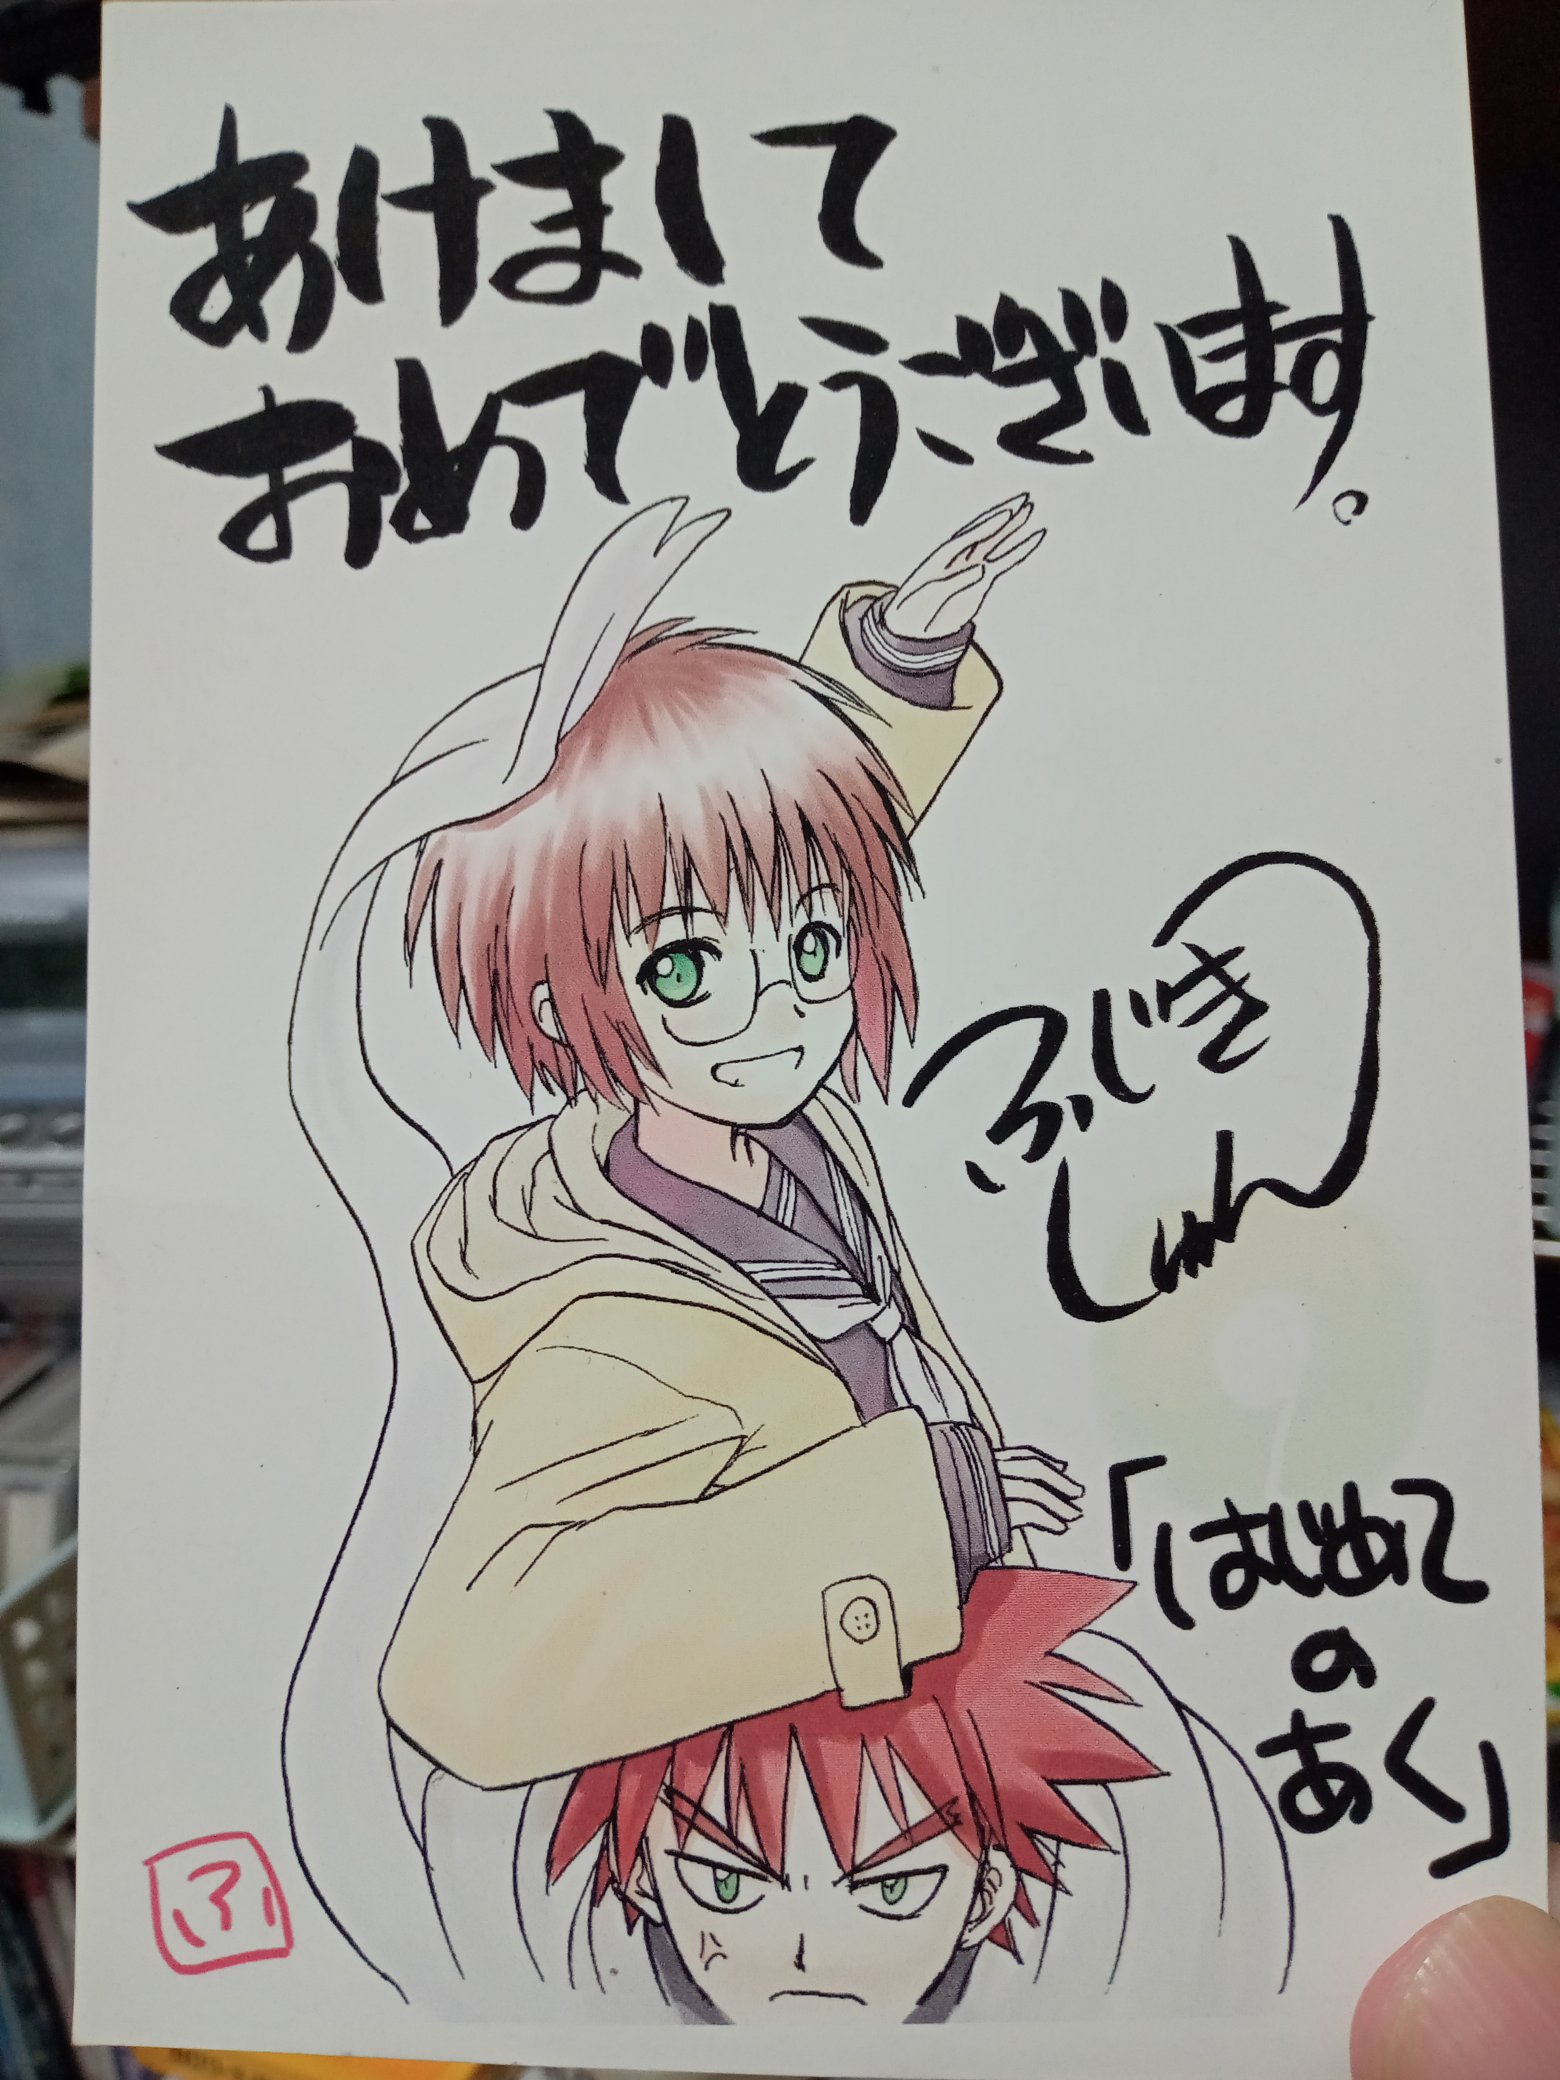 あけまして
おめでとうございます。
ふじき
しゅん
「はじめて
の
あく」
ふ